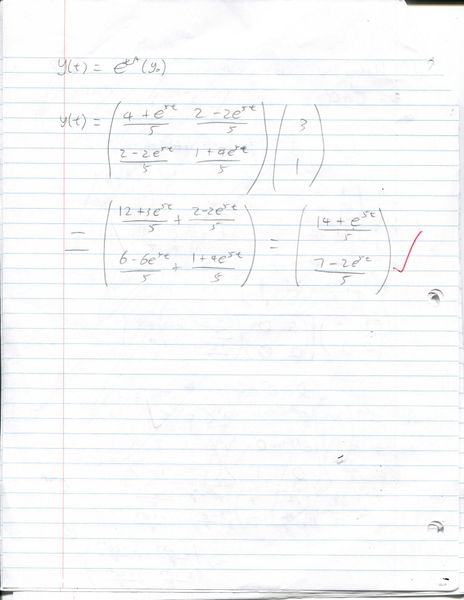 y(t) = e^{tA}(y₀)
y(t) = ( (4 + e^{5t})/5   (2 - 2e^{5t})/5 ; (2 - 2e^{5t})/5   (1 + 4e^{5t})/5 ) ( 3 ; 1 )
= ( (12 + 3e^{5t})/5 + (2 - 2e^{5t})/5 ; (6 - 6e^{5t})/5 + (1 + 4e^{5t})/5 ) = ( (14 + e^{5t})/5 ; (7 - 2e^{5t})/5 ) ✓